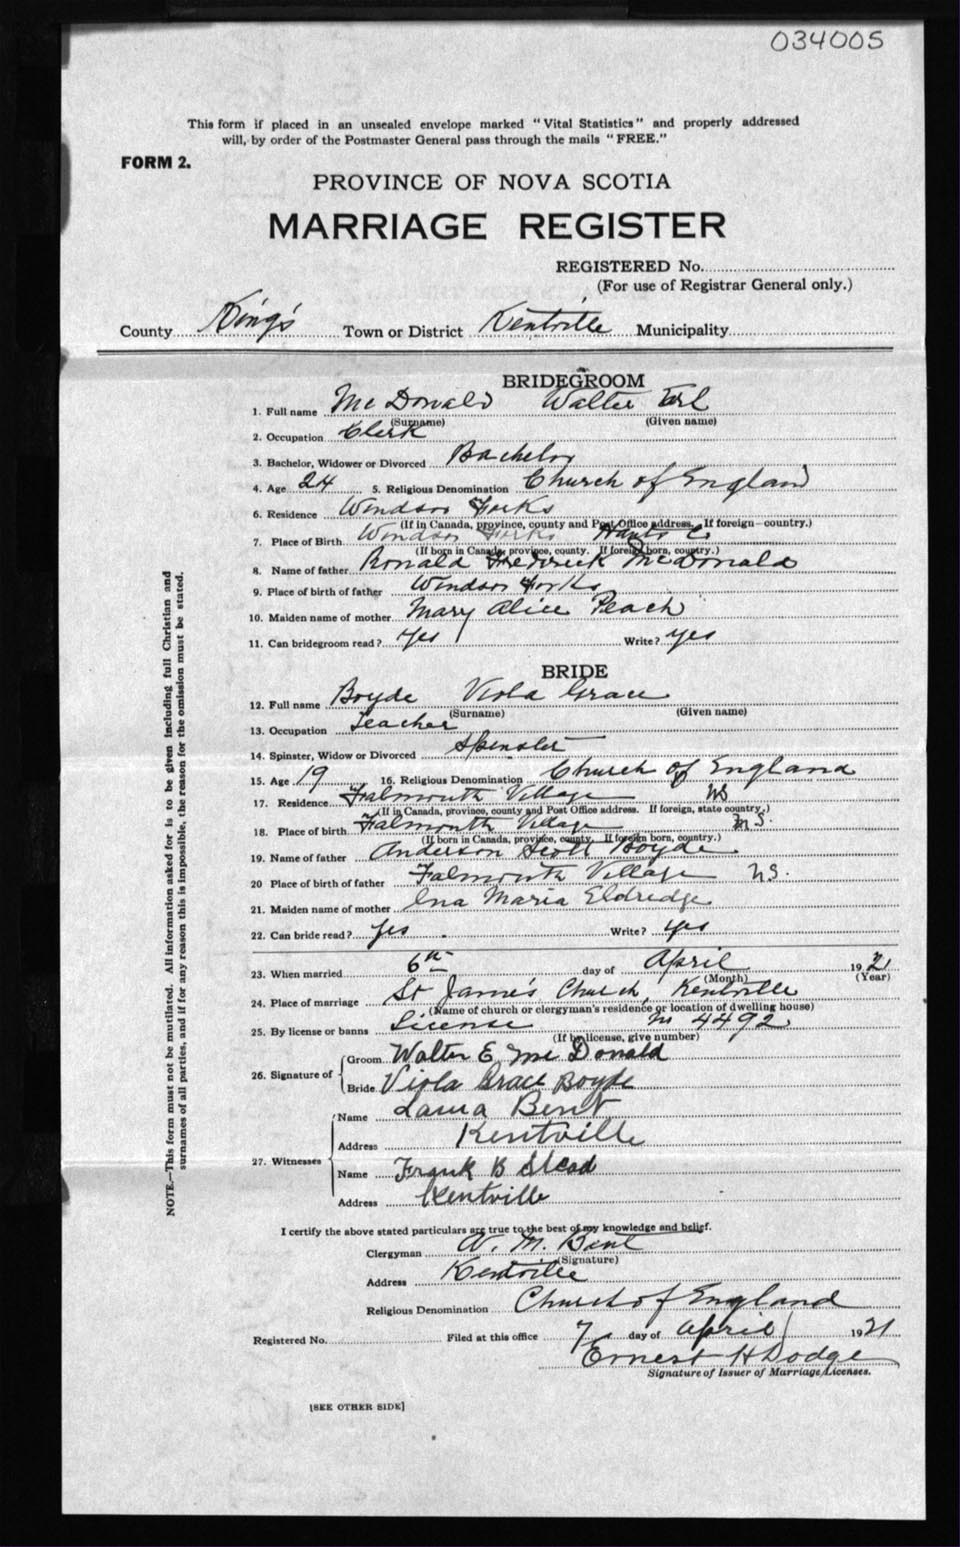 034005
This form if placed in an unsealed envelope marked "Vital Statistics" and properly addressed
will, by order of the Postmaster General pass through the mails "FREE."
FORM 2.
PROVINCE OF NOVA SCOTIA
MARRIAGE REGISTER
REGISTERED No.
(For use of Registrar General only.)
County King's Town or District Kentville Municipality
BRIDEGROOM
1. Full name McDonald Walter Erl
(Surname) (Given name)
2. Occupation Clerk
3. Bachelor, Widower or Divorced Bachelor
4. Age 24 5. Religious Denomination Church of England
6. Residence Windsor Forks
(If in Canada, province, county and Post Office address. If foreign—country.)
7. Place of Birth Windsor Forks Hants Co
(If born in Canada, province, county. If foreign born, country.)
8. Name of father Ronald Frederick McDonald
9. Place of birth of father Windsor Forks
10. Maiden name of mother Mary Alice Peach
11. Can bridegroom read? Yes Write? yes
BRIDE
12. Full name Boyde Viola Grace
(Surname) (Given name)
13. Occupation Teacher
14. Spinster, Widow or Divorced Spinster
15. Age 19 16. Religious Denomination Church of England
17. Residence Falmouth Village NS
(If in Canada, province, county and Post Office address. If foreign, state country.)
18. Place of birth Falmouth Village N S.
(If born in Canada, province, county. If foreign born, country.)
19. Name of father Anderson Scott Boyde
20 Place of birth of father Falmouth Village NS.
21. Maiden name of mother Ina Maria Eldredge
22. Can bride read? Yes Write? yes
23. When married 6th day of April 1921
(Month) (Year)
24. Place of marriage St James Church Kentville
(Name of church or clergyman's residence or location of dwelling house)
25. By license or banns License No 4492
(If by license, give number)
26. Signature of
Groom Walter E McDonald
Bride Viola Grace Boyde
27. Witnesses
Name Laura Bent
Address Kentville
Name Frank B Stead
Address Kentville
I certify the above stated particulars are true to the best of my knowledge and belief.
Clergyman W. M. Bent
(Signature)
Address Kentville
Religious Denomination Church of England
Registered No. Filed at this office 7 day of April 1921
Ernest H Dodge
Signature of Issuer of Marriage Licenses.
[SEE OTHER SIDE]
NOTE.—This form must not be mutilated. All information asked for is to be given including full Christian and
surnames of all parties, and if for any reason this is impossible, the reason for the omission must be stated.